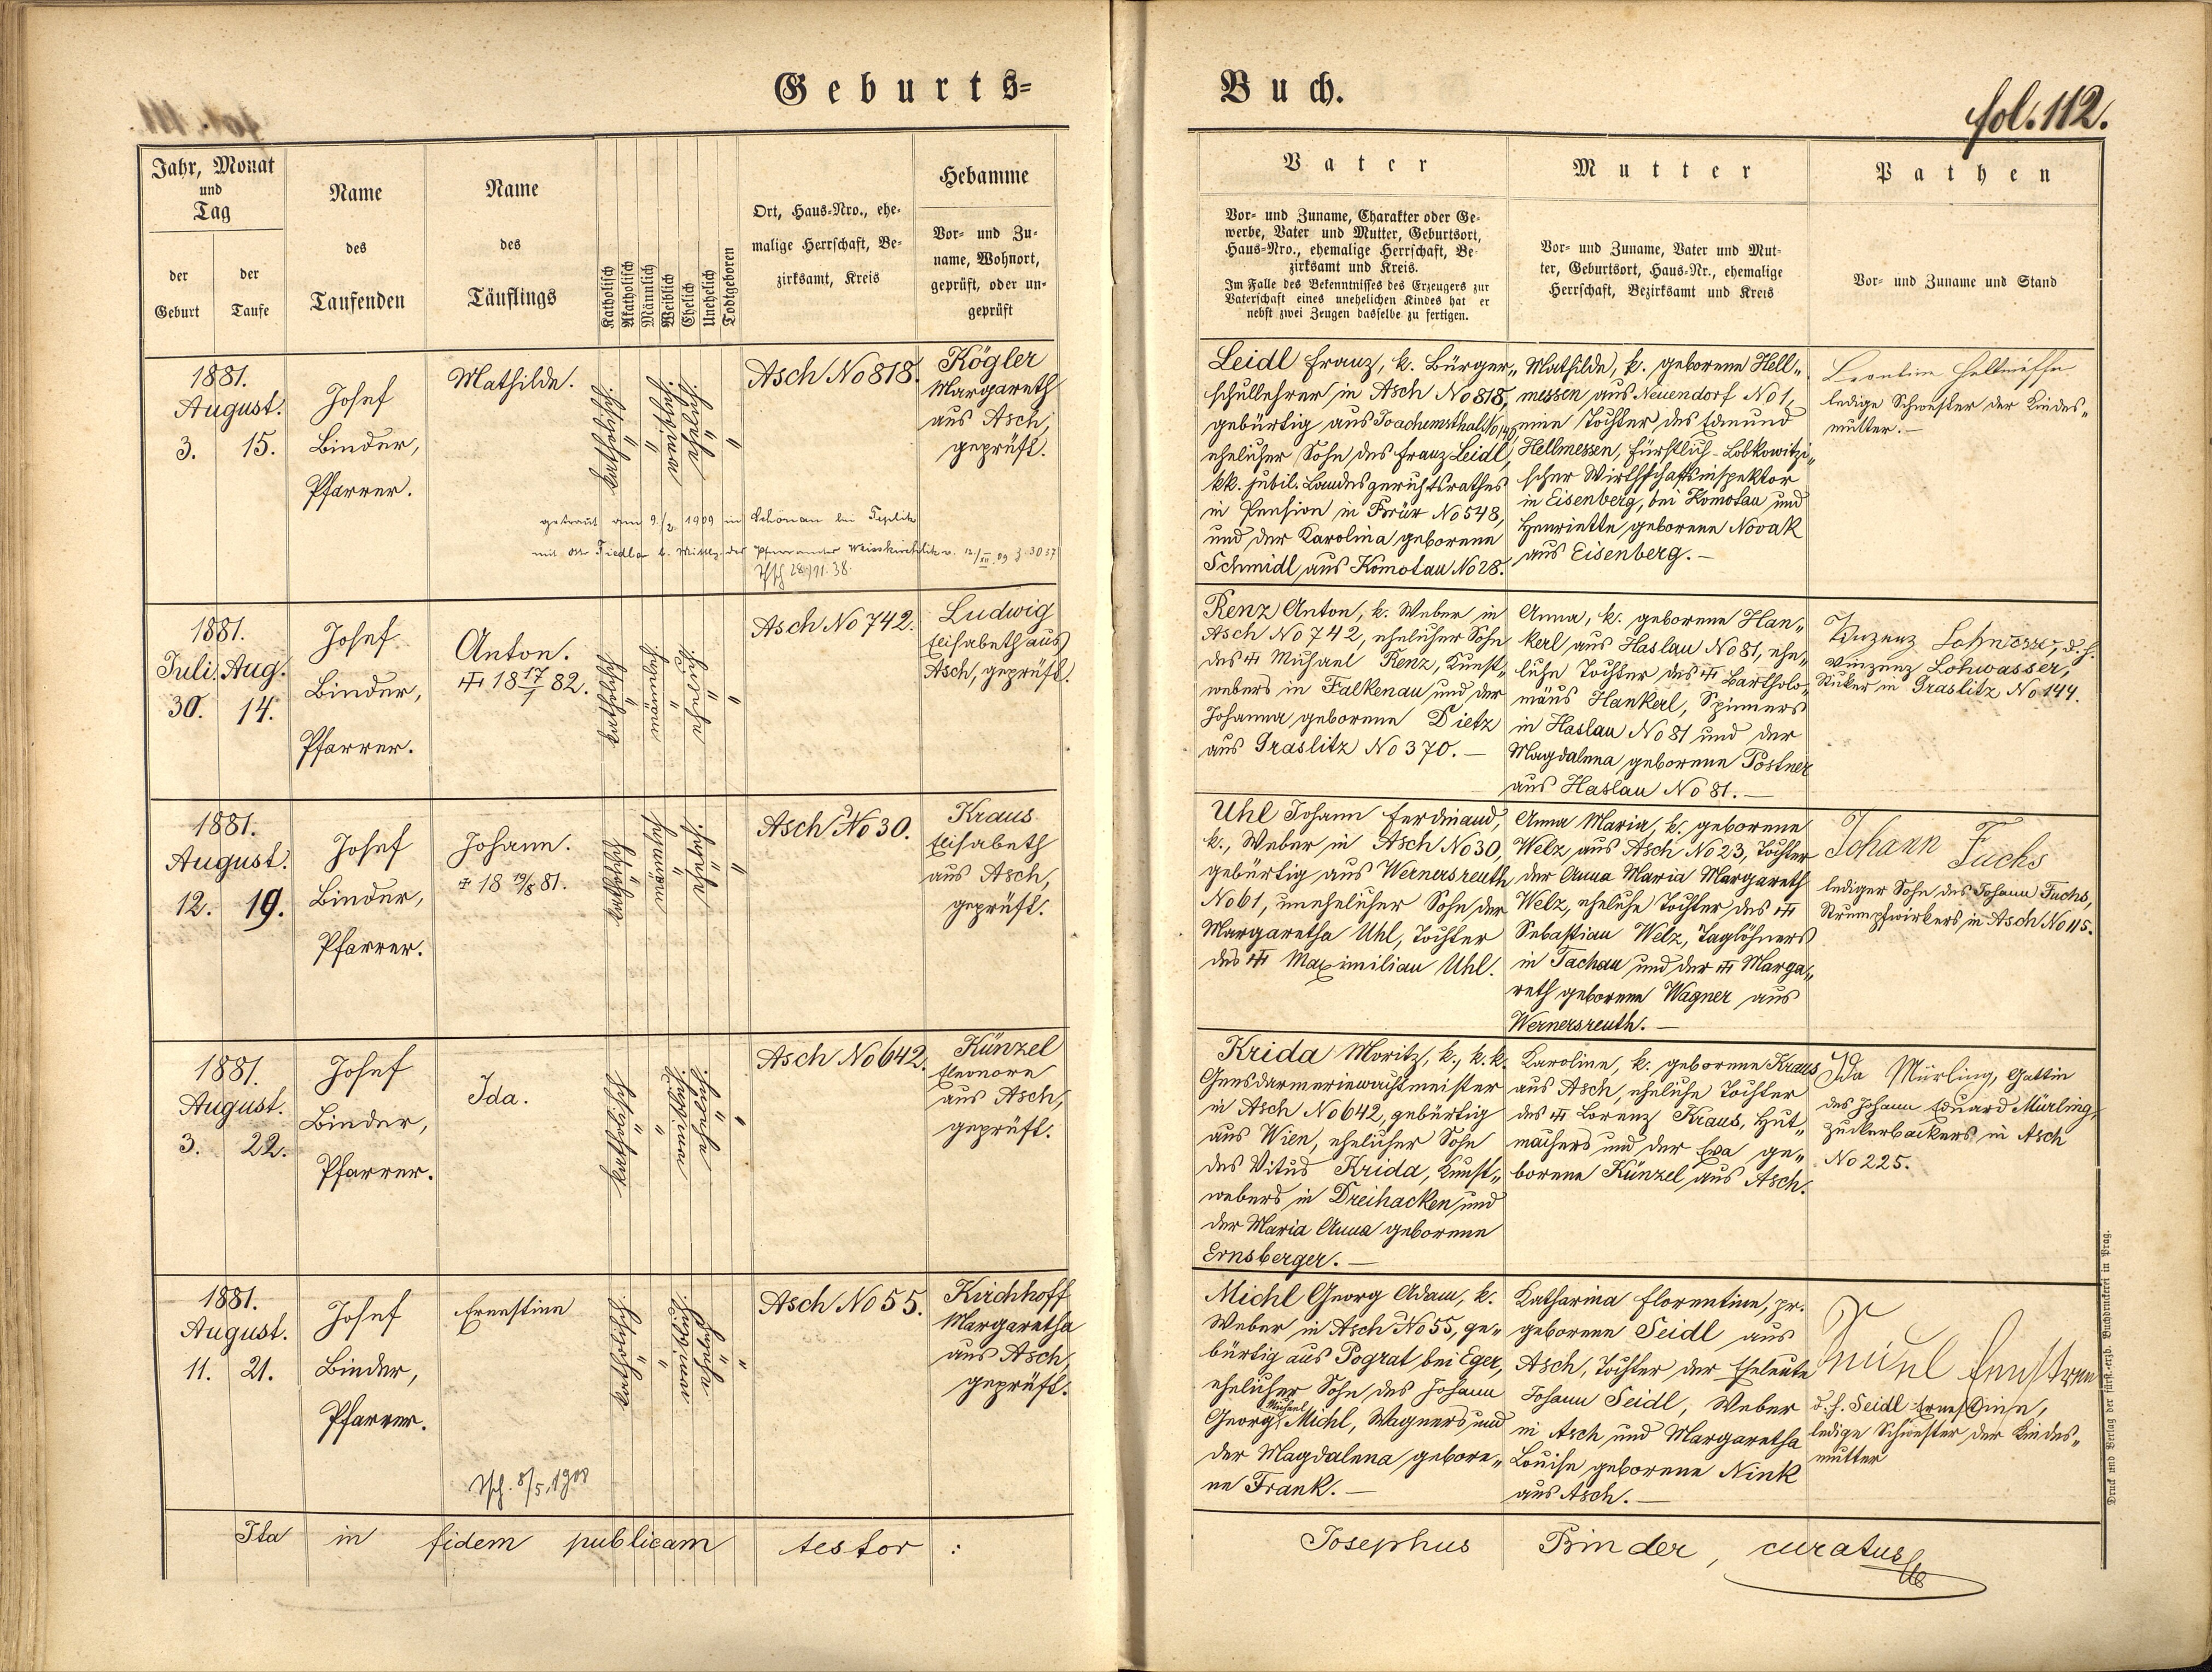 Geburts-
Buch.
fol. 112.
Jahr, Monat
und
Tag
der
Geburt
der
Taufe
Name
des
Taufenden
Name
des
Täuflings
Katholisch
Akatholisch
Männlich
Weiblich
Ehelich
Unehelich
Todtgeboren
Ort, Haus-Nro., ehe-
malige Herrschaft, Be-
zirksamt, Kreis
Hebamme
Vor- und Zu-
name, Wohnort,
geprüft, oder un-
geprüft
Vater
Vor- und Zuname, Charakter oder Ge-
werbe, Vater und Mutter, Geburtsort,
Haus-Nro., ehemalige Herrschaft, Be-
zirksamt und Kreis.
Im Falle des Bekenntnisses des Erzeugers zur
Vaterschaft eines unehelichen Kindes hat er
nebst zwei Zeugen dasselbe zu fertigen.
Mutter
Vor- und Zuname, Vater und Mut-
ter, Geburtsort, Haus-Nr., ehemalige
Herrschaft, Bezirksamt und Kreis
Pathen
Vor- und Zuname und Stand
1881.
August.
3. 15.
Josef
Binder,
Pfarrer.
Mathilde.
katholisch.
"
"
weiblich.
ehelich.
"
"
Asch No 818.
Kögler
Margareth
aus Asch,
geprüft.
getraut am 9./2. 1909 in Schönau bei Teplitz
mit Otto Tiedl
28./11.38.
Leidl Franz, k. Bürger„
schullehrer in Asch No 818,
gebürtig aus Joachimsthal No
ehelicher Sohn des Franz Leidl,
kk. jubil. Landesgerichtsrathes
in Pension in Brüx No 548,
und der Karolina geborene
Schmidl aus Komotau No 28.
Mathilde, k. geborene Hell„
messen aus Neuendorf No 1,
eine Tochter des Edmund
Hellmessen, Fürstlich-Lobkowitzi„
scher Wirthschaftsinspektor
in Eisenberg, bei Komotau und
Henriette geborene Novak
aus Eisenberg. —
Leontine Hellmessen
ledige Schwester der Kindes„
mutter. —
1881.
Juli. Aug.
30. 14.
Josef
Binder,
Pfarrer.
Anton.
18 17/1 82.
katholisch
"
männlich
"
ehelich.
"
"
Asch No 742.
Ludwig
Elisabeth aus
Asch, geprüft.
Renz Anton, k. Weber in
Asch No 742, ehelicher Sohn
des Michael Renz, Kunst„
webers in Falkenau und der
Johanna geborene Dietz
aus Graslitz No 370. —
Anna, k. geborene Han„
kerl aus Haslau No 81, ehe„
liche Tochter des Bartholo„
mäus Hankerl, Spinners
in Haslau No 81 und der
Magdalena geborene Postner
aus Haslau No 81. —
Vinzenz Lohwasser, d. h.
Vinzenz Lohwasser,
in Graslitz No 144.
1881.
August.
12. 19.
Josef
Binder,
Pfarrer.
Johann.
18 19/8 81.
katholisch
"
männlich
"
ehelich.
"
"
Asch No 30.
Kraus
Elisabeth
aus Asch,
geprüft.
Uhl Johann Ferdinand,
k., Weber in Asch No 30,
gebürtig aus Wernersreuth
No 61, unehelicher Sohn der
Margaretha Uhl, Tochter
des Maximilian Uhl.
Anna Maria, k. geborene
Welz aus Asch No 23, Tochter
der Anna Maria Margareth
Welz, eheliche Tochter des
Sebastian Welz, Taglöhners
in Tachau und der Marga„
reth geborene Wagner aus
Wernersreuth. —
Johann Fuchs
lediger Sohn des Johann Fuchs,
Strumpfwirkers in Asch No 115.
1881.
August.
3. 22.
Josef
Binder,
Pfarrer.
Ida.
katholisch
"
weiblich
ehelich
"
"
Asch No 642.
Künzel
Eleonore
aus Asch,
geprüft.
Krida Moritz, k., k.k.
Gensdarmeriewachtmeister
in Asch No 642, gebürtig
aus Wien, ehelicher Sohn
des Vitus Krida, Kunst„
webers in Dreihacken und
der Maria Anna geborene
Ernsberger. —
Karoline, k. geborene Kraus
aus Asch, eheliche Tochter
des Lorenz Kraus, Hut„
machers und der Eva ge„
borene Künzel aus Asch.
Ida Mürling, Gattin
des Johann Eduard Mürling,
Zuckerbäckers in Asch
No 225.
1881.
August.
11. 21.
Josef
Binder,
Pfarrer.
Ernestine
8/5. 1908
katholisch
"
"
weiblich
ehelich
"
"
Asch No 55.
Kirchhoff
Margaretha
aus Asch,
geprüft.
Michl Georg Adam, k.
Weber in Asch No 55, ge„
bürtig aus Pograt bei Eger,
ehelicher Sohn des Johann
Michael
Georg Michl, Wagners und
der Magdalena gebore„
ne Frank. —
Katharina Florentine, pr.
geborene Seidl aus
Asch, Tochter der Eheleute
Johann Seidl, Weber
in Asch und Margaretha
Louise geborene Nink
aus Asch. —
Seidl Ernestine
d. h. Seidl Ernestine,
ledige Schwester der Kindes„
mutter
Ita in fidem publicam testor :
Josephus Binder, curatus
Druck und Verlag der fürst.-erzb. Buchdruckerei in Prag.